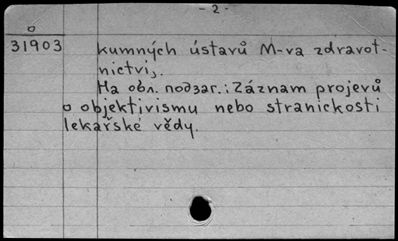 - 2 -
o
31903 kumných ústavů M-va zdravot-
nictví,.
На обл. подзаг.: Záznam projevů
o objektivismu nebo stranickosti
lekařské vědy.